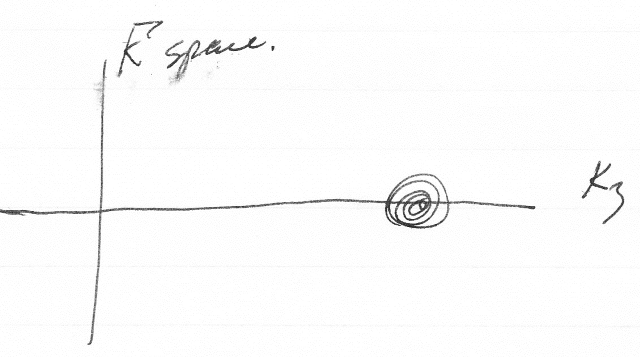 K⃗ space.
K₃